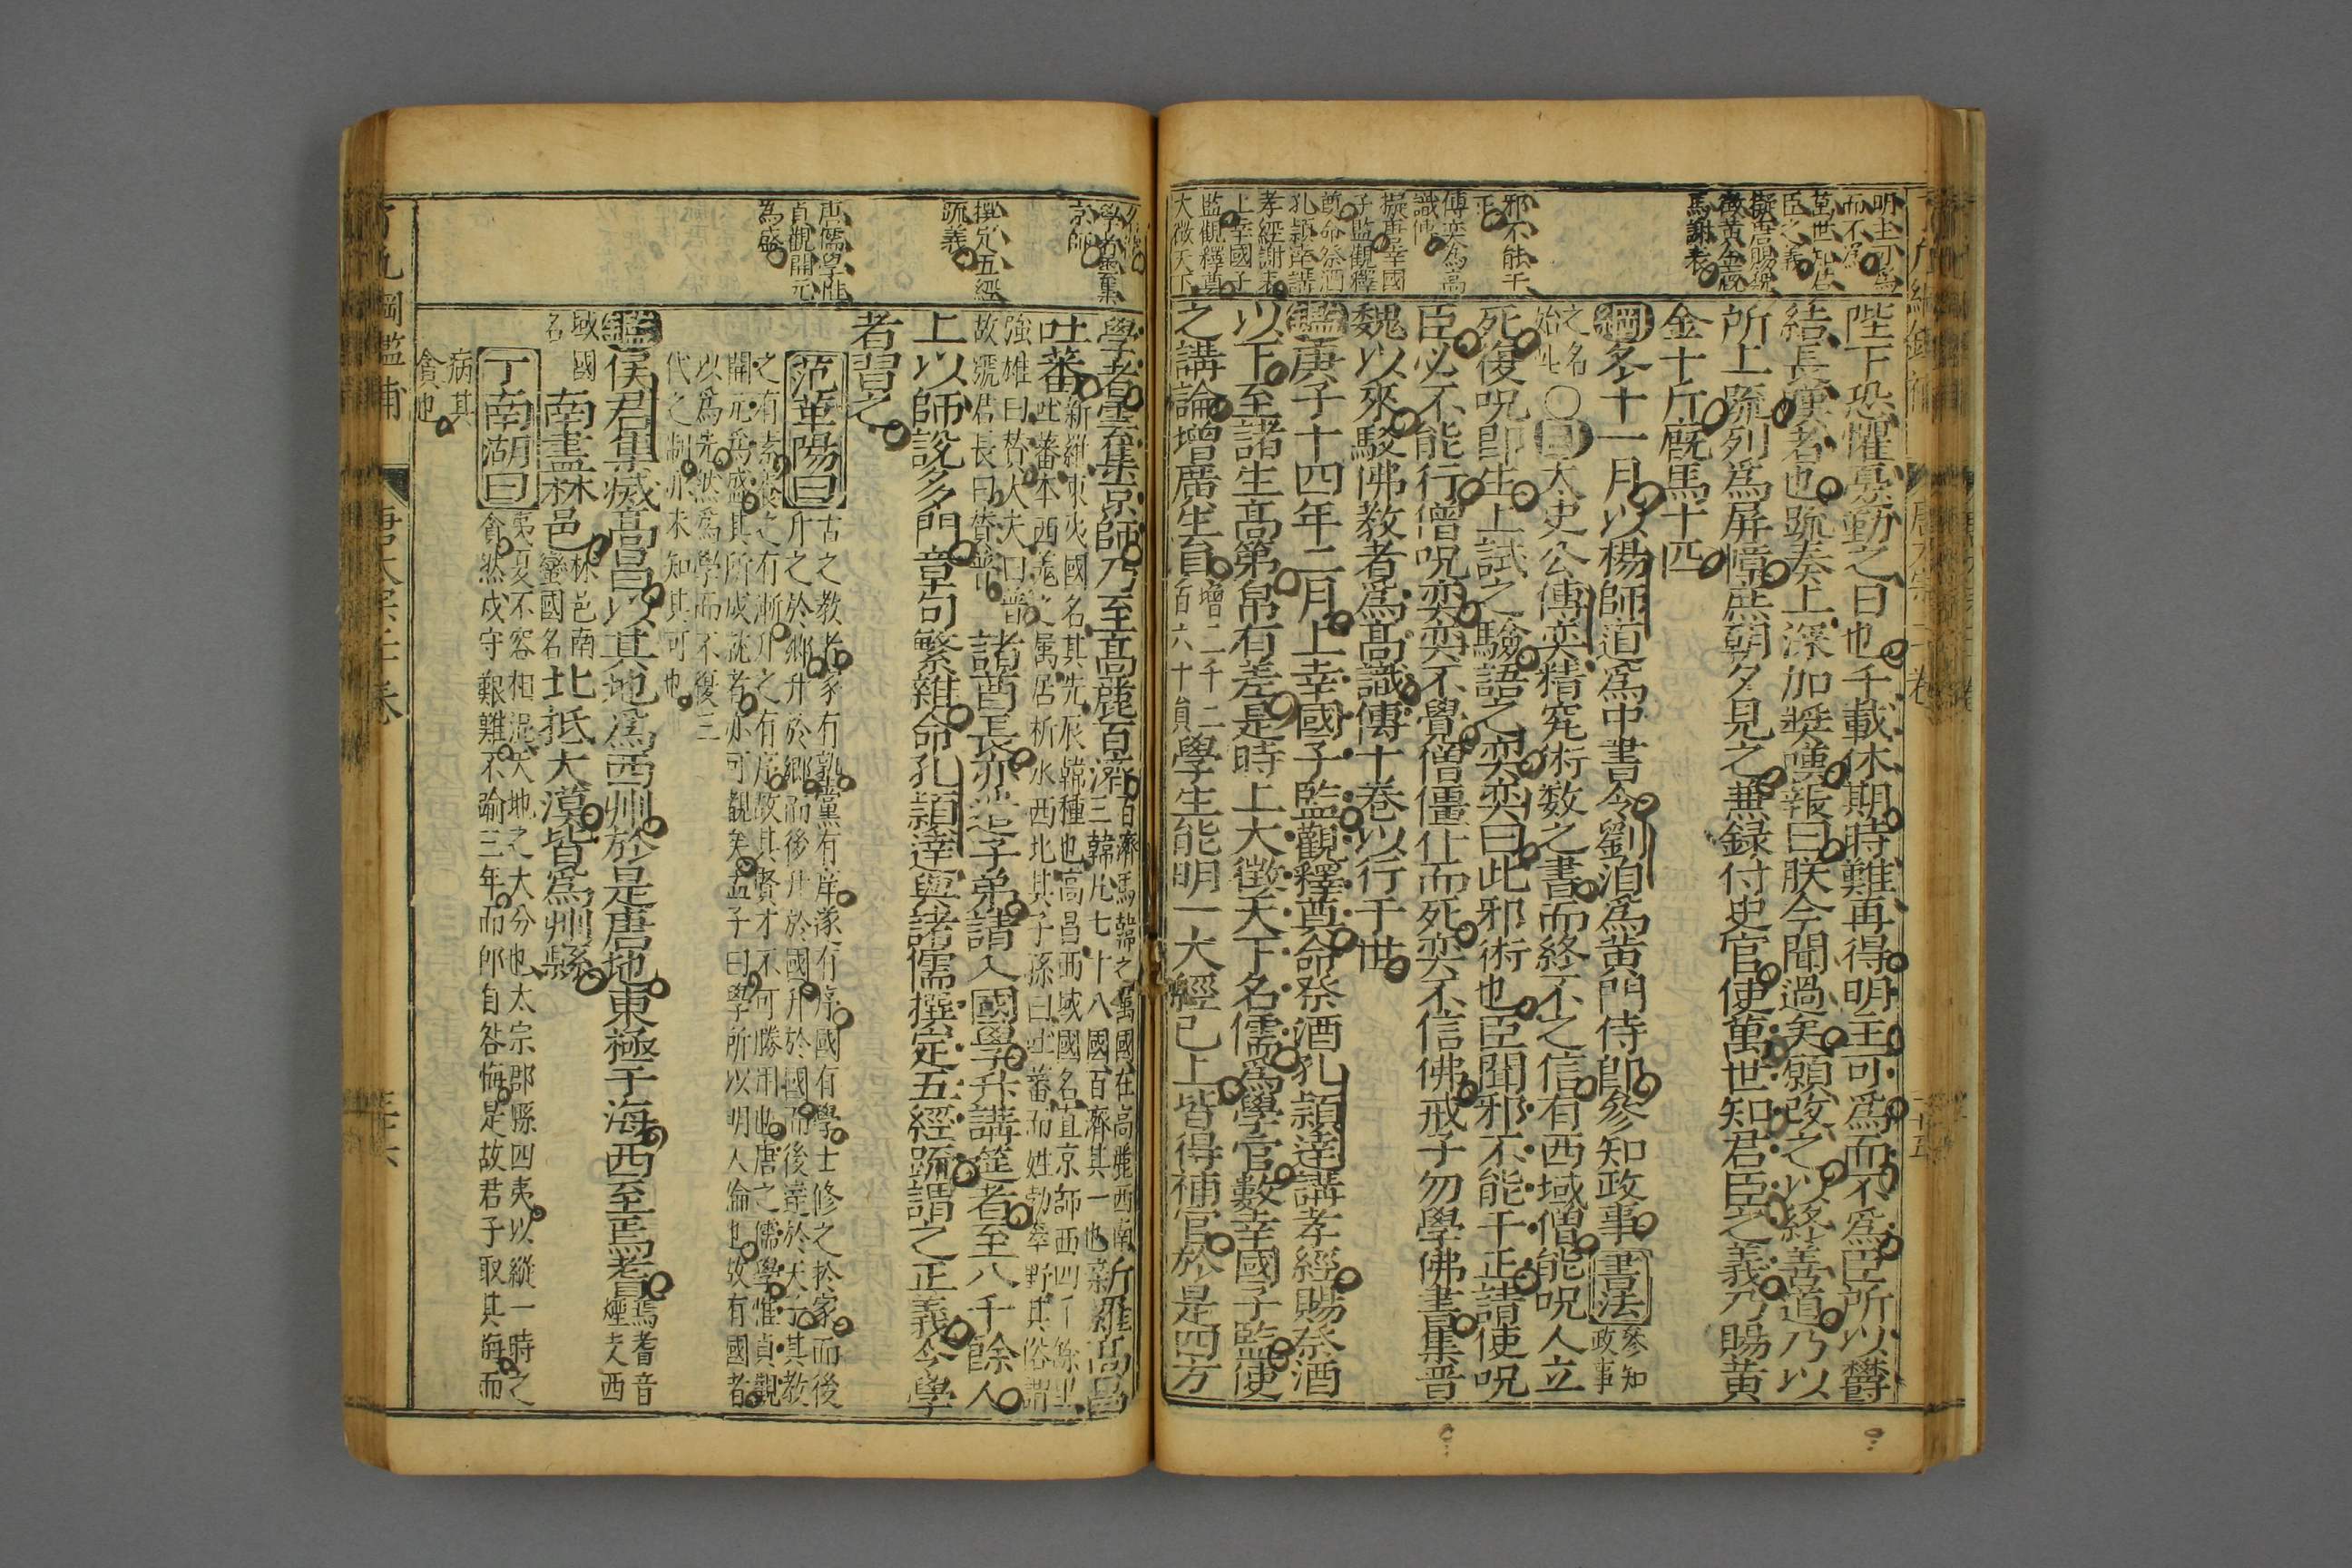 明主可為
而不為
萬世知君
臣之義
擬唐賜魏
徵黃金廐
馬謝表
邪不能干
正
傅奕為高
識傳
擬唐幸國
子監觀釋
奠命祭酒
孔穎達講
孝經謝表
上幸國子
監觀釋奠
大徵天下
陛下恐懼憂勤之日也千載休期時難再得明主可爲而不爲臣所以欝
結長嘆者也疏奏上深加奬嘆報曰朕今聞過矣願改之以終善道乃以
所上疏列爲屏幛庶朝夕見之兼録付史官使萬世知君臣之義乃賜黃
金十斤廐馬十四
綱冬十一月以楊師道爲中書令劉洎爲黃門侍郎參知政事書法參知
政事
之名
始此〇目太史公傅奕精究術数之書而終不之信有西域僧能呪人立
死復呪即生上試之驗語之奕奕曰此邪術也臣聞邪不能干正請使呪
臣必不能行僧呪奕奕不覺僧僵仆而死奕不信佛戒子勿學佛書集晋
魏以來駁佛教者爲高識傳十卷以行于世
鑑庚子十四年二月上幸國子監觀釋奠命祭酒孔穎達講孝經賜祭酒
以下至諸生高第帛有差是時上大徵天下名儒爲學官數幸國子監使
之講論增廣生員增二千二
百六十員學生能明一大經已上皆得補官於是四方
學者雲集
京師
撰定五經
疏義
唐儒學惟
貞觀開元
為盛
學者雲集京師乃至高麗百濟百濟馬韓之屬國在高麗西南
三韓凡七十八國百濟其一也新羅高昌
吐蕃新羅東夷國名其先辰韓種也高昌西域國名直京師西四千餘里
吐蕃本西羗之属居析水西北其子孫曰吐蕃而姓勃窣野其俗謂
強雄曰賛大夫曰普
故號君長曰賛普諸酋長亦遣子弟請入國學升講筵者至八千餘人
上以師說多門章句繁雜命孔穎達與諸儒撰定五經疏謂之正義令學
者習之
范華陽曰古之教者家有塾黨有庠遂有序國有學士修之於家而後
升之於鄉升於鄉而後升於國升於國而後達於天子其教
之有素養之有漸升之有序故其賢才不可勝用也唐之儒學惟貞觀
開元爲盛其所成就者亦可觀矣孟子曰學所以明人倫也故有國者
以爲先然爲學而不復三
代之制亦未知其可也
鑑侯君集滅高昌以其地爲西州於是唐地東極于海西至焉耆焉耆音
煙支西
域國
名南盡林邑林邑南
蠻國名北抵大漠皆爲州縣
丁南湖曰夷夏不容相混天地之大分也太宗郡縣四夷以縱一時之
貪然戍守艱難不踰三年而郎自咎悔是故君子取其悔而
病其
貪也